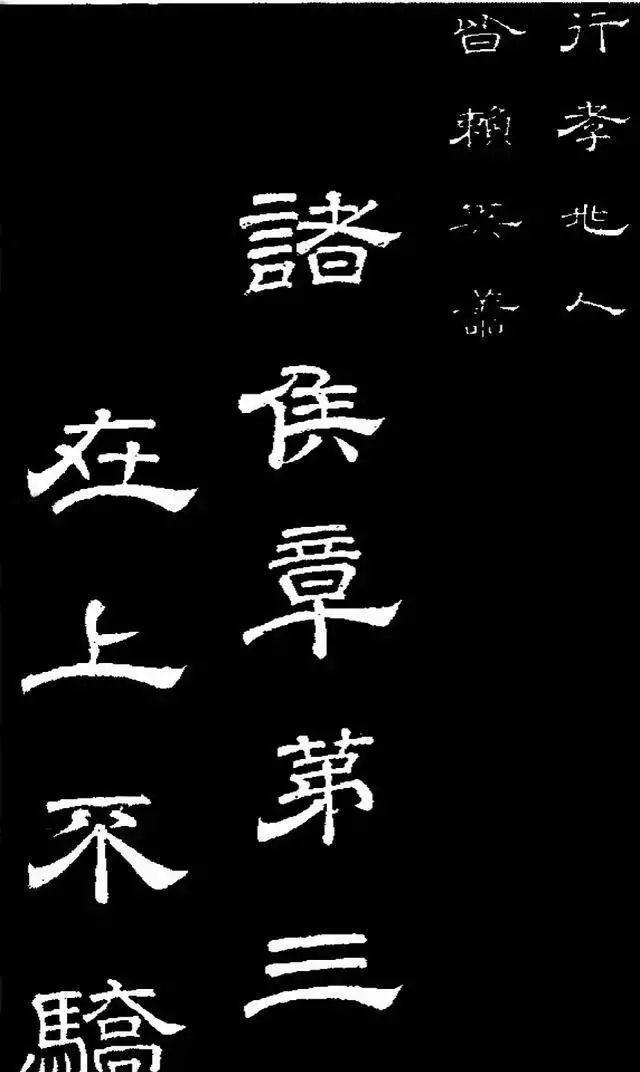 行孝兆人
皆賴其善
諸侯章第三
在上不驕